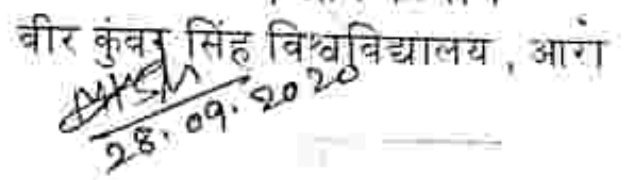 वीर कुंवर सिंह विश्वविद्यालय , आरा
28.09.2020